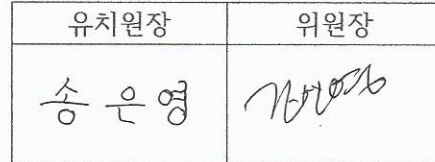 유치원장 위원장
송은영